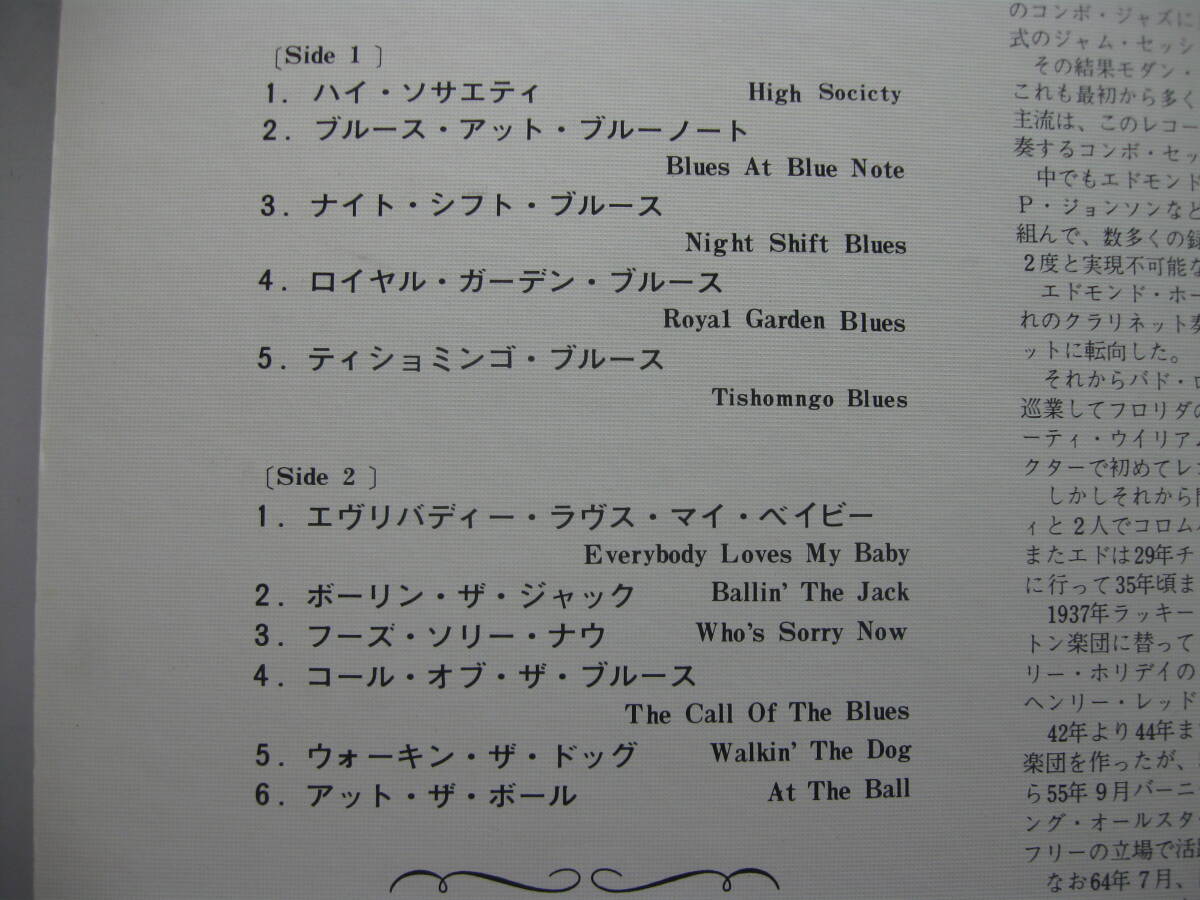 [Side 1]
1. ハイ・ソサエティ High Socicty
2. ブルース・アット・ブルーノート
Blues At Blue Note
3. ナイト・シフト・ブルース
Night Shift Blues
4. ロイヤル・ガーデン・ブルース
Royal Garden Blues
5. ティショミンゴ・ブルース
Tishomngo Blues
[Side 2]
1. エヴリバディー・ラヴス・マイ・ベイビー
Everybody Loves My Baby
2. ボーリン・ザ・ジャック Ballin' The Jack
3. フーズ・ソリー・ナウ Who's Sorry Now
4. コール・オブ・ザ・ブルース
The Call Of The Blues
5. ウォーキン・ザ・ドッグ Walkin' The Dog
6. アット・ザ・ボール At The Ball
のコンボ・ジャズに
式のジャム・セッシ
その結果モダン・
これも最初から多く
主流は、このレコー
奏するコンボ・セッ
中でもエドモンド
P・ジョンソンなど
組んで、数多くの録
2度と実現不可能な
エドモンド・ホー
れのクラリネット奏
ットに転向した。
それからバド・
巡業してフロリダの
ーティ・ウイリアム
クターで初めてレ
しかしそれから
ィと2人でコロム
またエドは29年チ
に行って35年頃ま
1937年ラッキー
トン楽団に替って
リー・ホリデイの
ヘンリー・レッド
42年より44年ま
楽団を作ったが、
ら55年9月バーニ
ング・オールスタ
フリーの立場で活
なお64年7月、